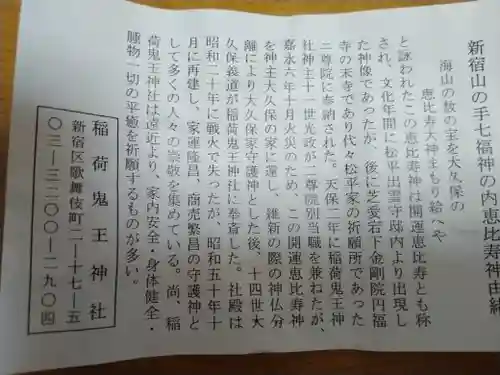 新宿山の手七福神の内恵比寿神由緒
海山の數の宝を大久保の
恵比寿大神まもり給へや
と詠われたこの恵比寿神は開運恵比寿とも称
され、文化年間に松平出雲守邸内より出現し
た神像であったが、後に芝愛宕下金剛院内福
寺の末寺であり代々松平家の祈願所であった
二尊院に奉納された。天保二年に稲荷鬼王神
社神主十一世光政が二尊院別当職を兼ねたが、
嘉永六年十月火災のため、この開運恵比寿神
を神主大久保の家に還し、維新の際の神仏分
離により大久保家守護神とした後、十四世大
久保義道が稲荷鬼王神社に奉斎した。社殿は
昭和二十年に戦火で失ったが、昭和五十年十
月に再建し、家運隆昌、商売繁昌の守護神と
して多くの人々の崇敬を集めている。尚、稲
荷鬼王神社は遠近より、家内安全・身体健全・
腫物一切の平癒を祈願するものが多い。
稲荷鬼王神社
新宿区歌舞伎町二―十七―五
〇三―三二〇〇―二九〇四